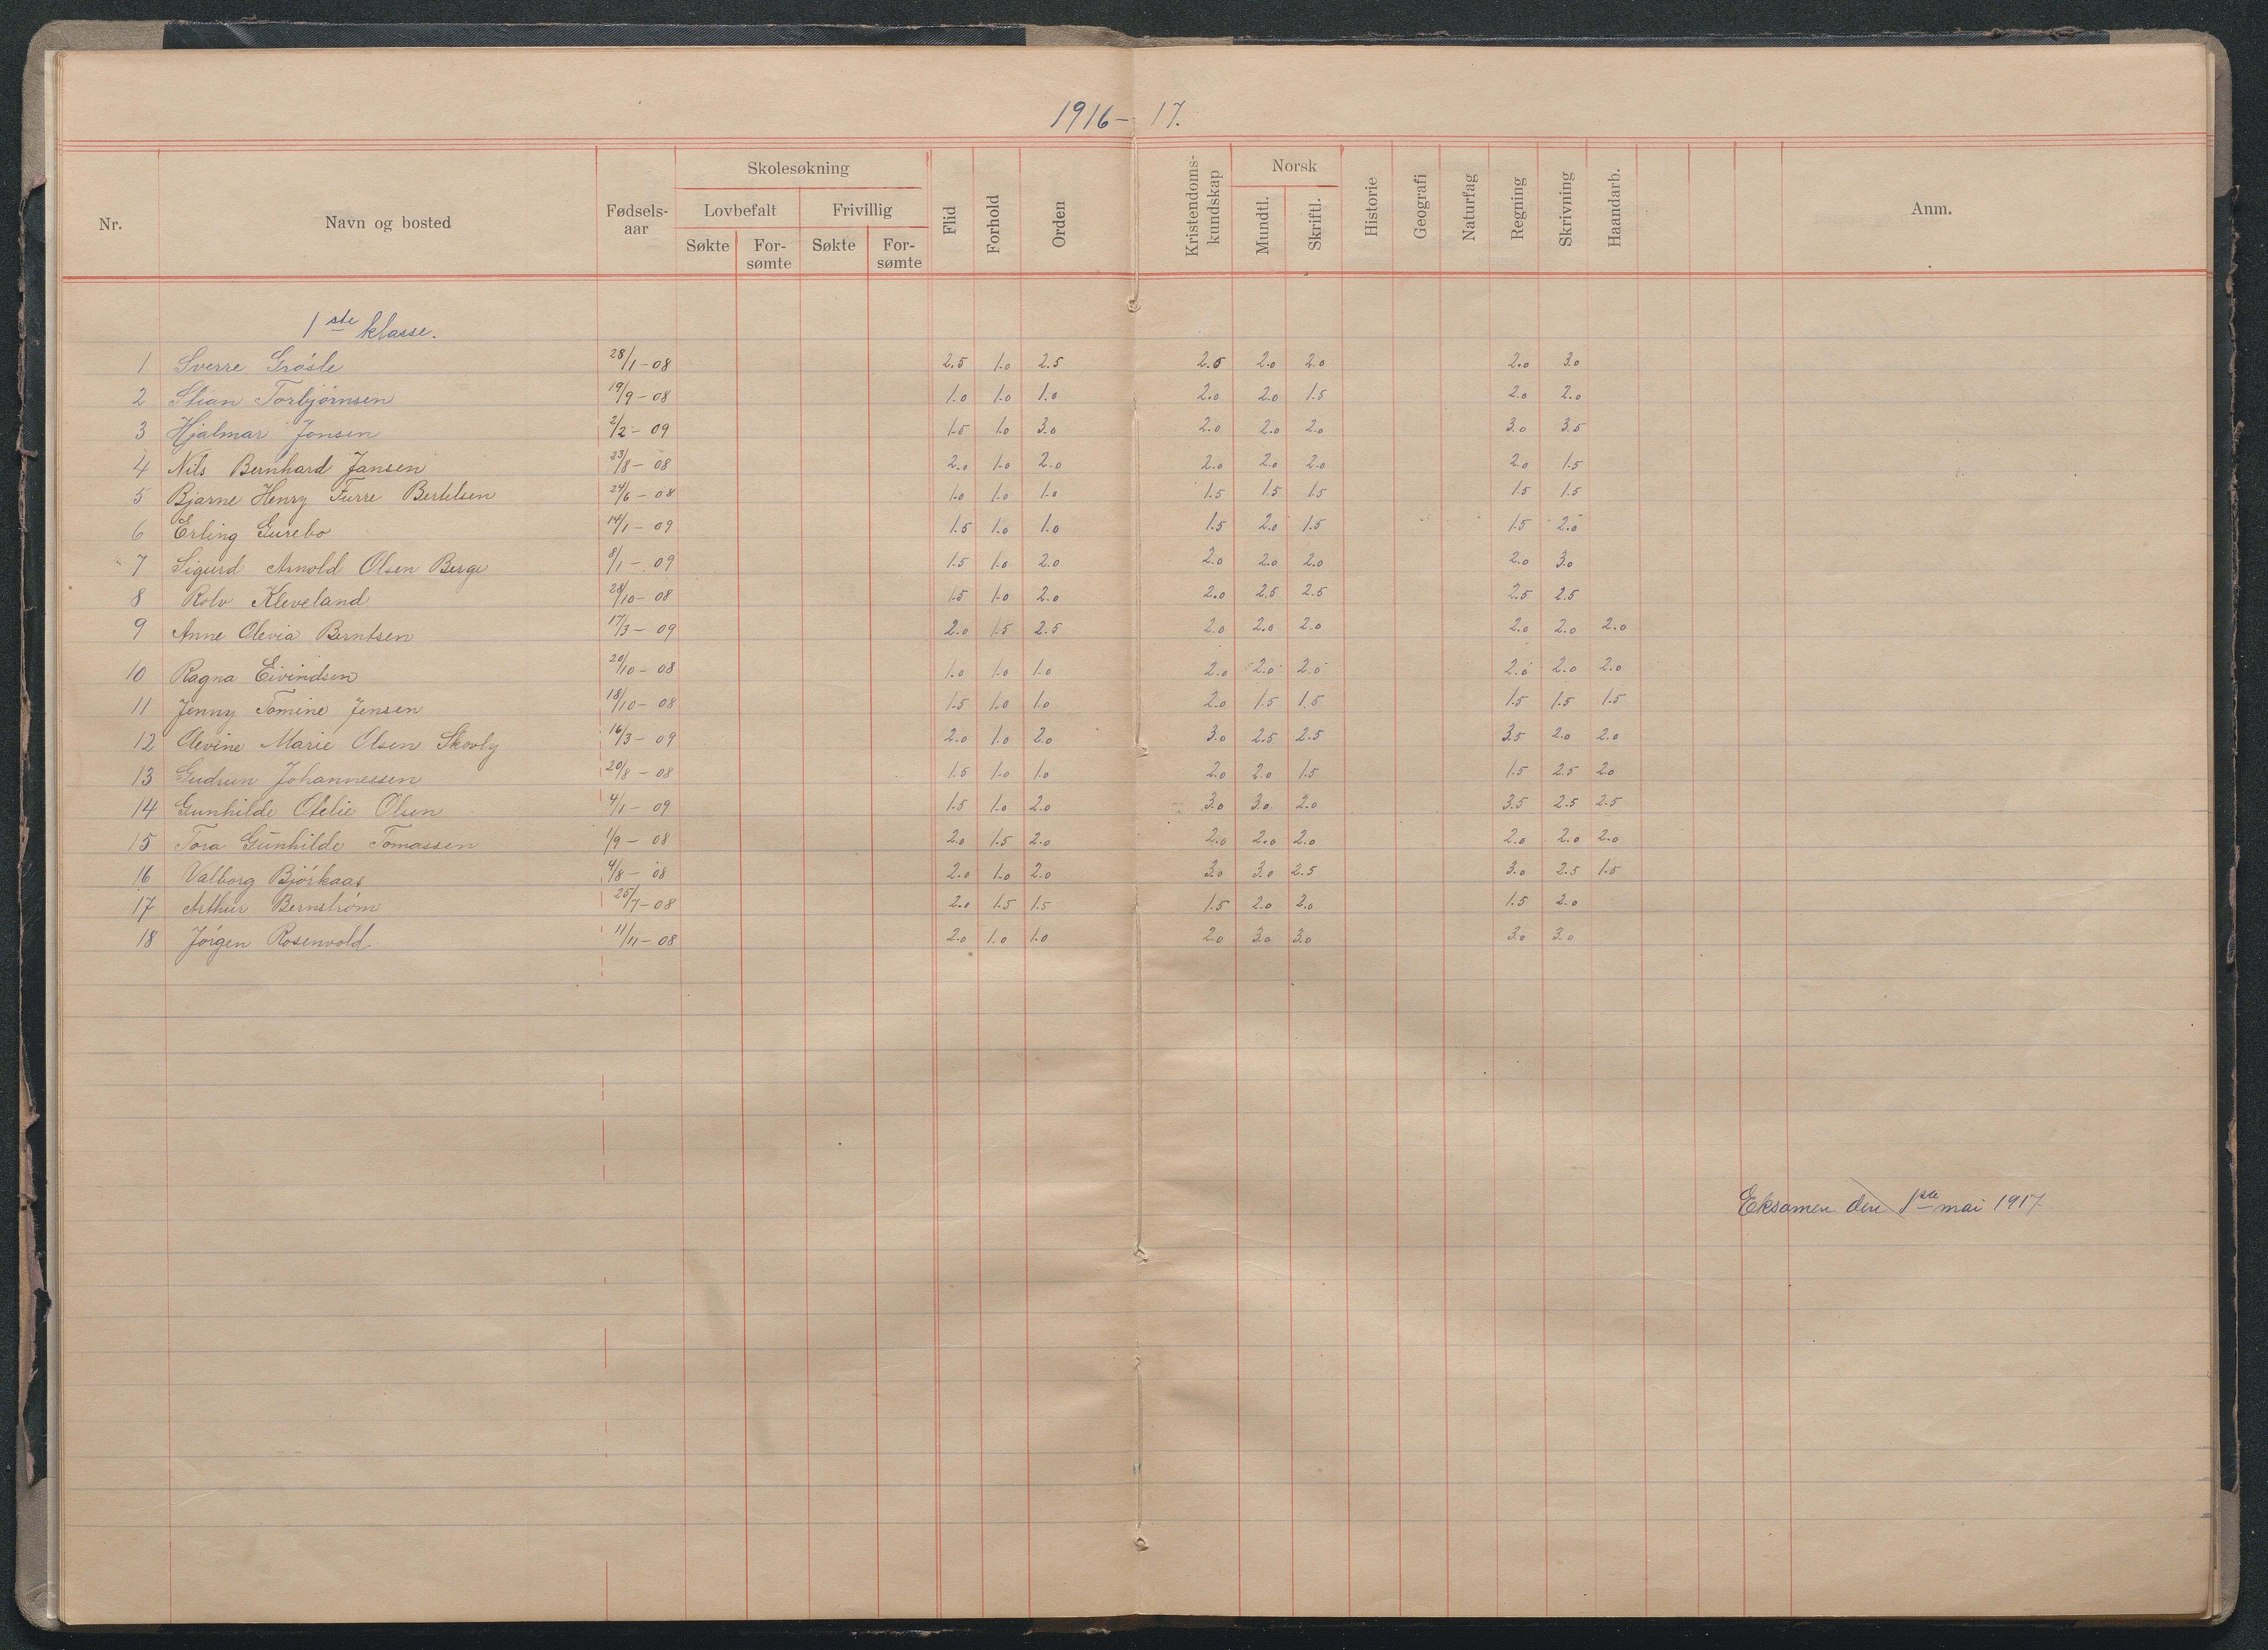 1916-17.
Nr. Navn og bosted Fødsels-aar Skolesøkning Lovbefalt Søkte For-sømte Frivillig Søkte For-sømte Flid Forhold Orden Kristendoms-kundskap Norsk Mundtl. Skriftl. Historie Geografi Naturfag Regning Skrivning Haandarb. Anm.
1ste klasse.
1 Sverre Grósle 28/1-08 2.5 1.0 2.5 2.5 2.0 2.0 2.0 3.0
2 Stian Torbjørnsen 19/9-08 1.0 1.0 1.0 2.0 2.0 1.5 2.0 2.0
3 Hjalmar Jonsen 2/2-09 1.5 1.0 3.0 2.0 2.0 2.0 3.0 3.5
4 Nils Bernhard Jansen 23/8-08 2.0 1.0 2.0 2.0 2.0 2.0 2.0 1.5
5 Bjarne Henry Furre Bertelsen 24/6-08 1.0 1.0 1.0 1.5 1.5 1.5 1.5 1.5
6 Erling Gurebo 14/1-09 1.5 1.0 1.0 1.5 2.0 1.5 1.5 2.0
7 Sigurd Arnold Olsen Berge 8/1-09 1.5 1.0 2.0 2.0 2.0 2.0 2.0 3.0
8 Rolv Kleveland 28/10-08 1.5 1.0 2.0 2.0 2.5 2.5 2.5 2.5
9 Anne Olevia Berntsen 17/3-09 2.0 1.5 2.5 2.0 2.0 2.0 2.0 2.0 2.0
10 Ragna Eivindsen 20/10-08 1.0 1.0 1.0 2.0 2.0 2.0 2.0 2.0 2.0
11 Jenny Tomine Jensen 18/10-08 1.5 1.0 1.0 2.0 1.5 1.5 1.5 1.5 1.5
12 Olevine Marie Olsen Skovly 16/3-09 2.0 1.0 2.0 3.0 2.5 2.5 3.5 2.0 2.0
13 Gudrun Johannessen 20/8-08 1.5 1.0 1.0 2.0 2.0 1.5 1.5 2.5 2.0
14 Gunhilde Otelie Olsen 4/1-09 1.5 1.0 2.0 3.0 3.0 2.0 3.5 2.5 2.5
15 Tora Gunhilde Tomassen 1/9-08 2.0 1.5 2.0 2.0 2.0 2.0 2.0 2.0 2.0
16 Valborg Bjórkaas 4/8-08 2.0 1.0 2.0 3.0 3.0 2.5 3.0 2.5 1.5
17 Arthur Bernstrøm 25/7-08 2.0 1.5 1.5 1.5 2.0 2.0 1.5 2.0
18 Jórgen Rosenvold 11/11-08 2.0 1.0 1.0 2.0 3.0 3.0 3.0 3.0
Eksamen den 1ste mai 1917.